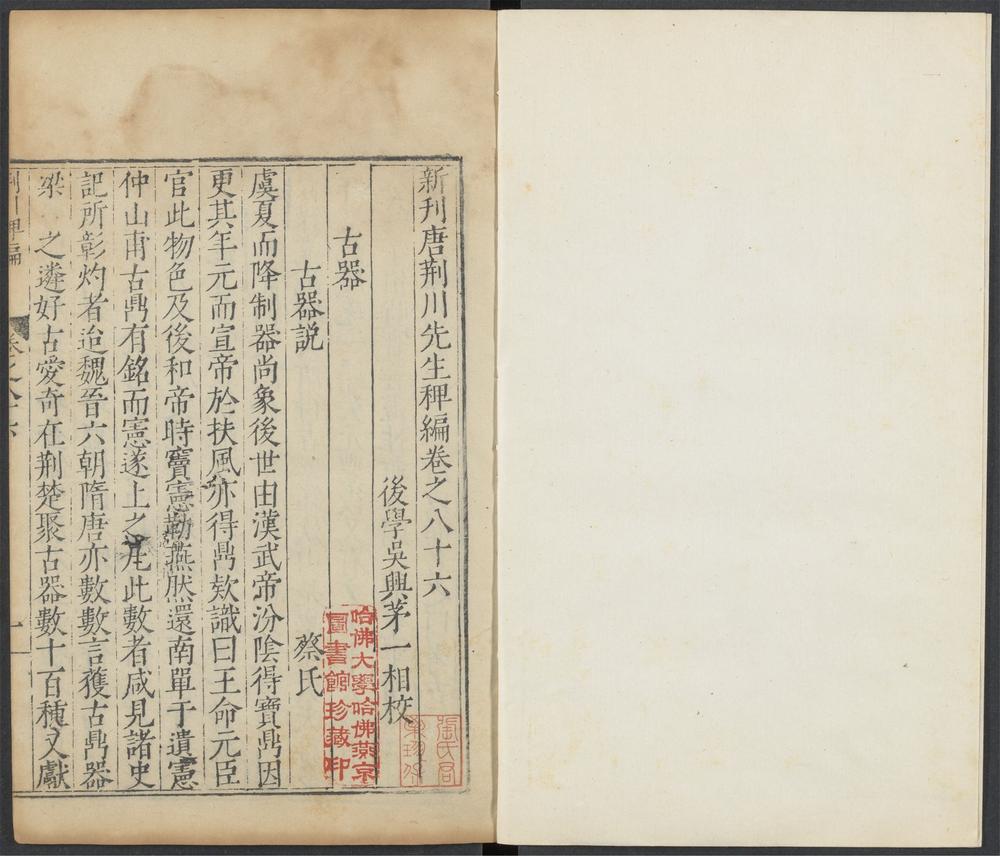 新刊唐荆川先生稗編卷之八十六
後學吳興茅一相校
古器
古器說　蔡氏
虞夏而降制器尚象後世由漢武帝汾陰得寶鼎因
更其年元而宣帝於扶風亦得鼎欵識曰王命元臣
官此物色及後和帝時竇憲勒燕然還南單于遺憲
仲山甫古鼎有銘而憲遂上之凡此數者咸見諸史
記所彰灼者迨魏晉六朝隋唐亦數數言獲古鼎器
梁　之遴好古愛奇在荆楚聚古器數十百種又獻
哈佛大學哈佛燕京
圖書館珍藏印